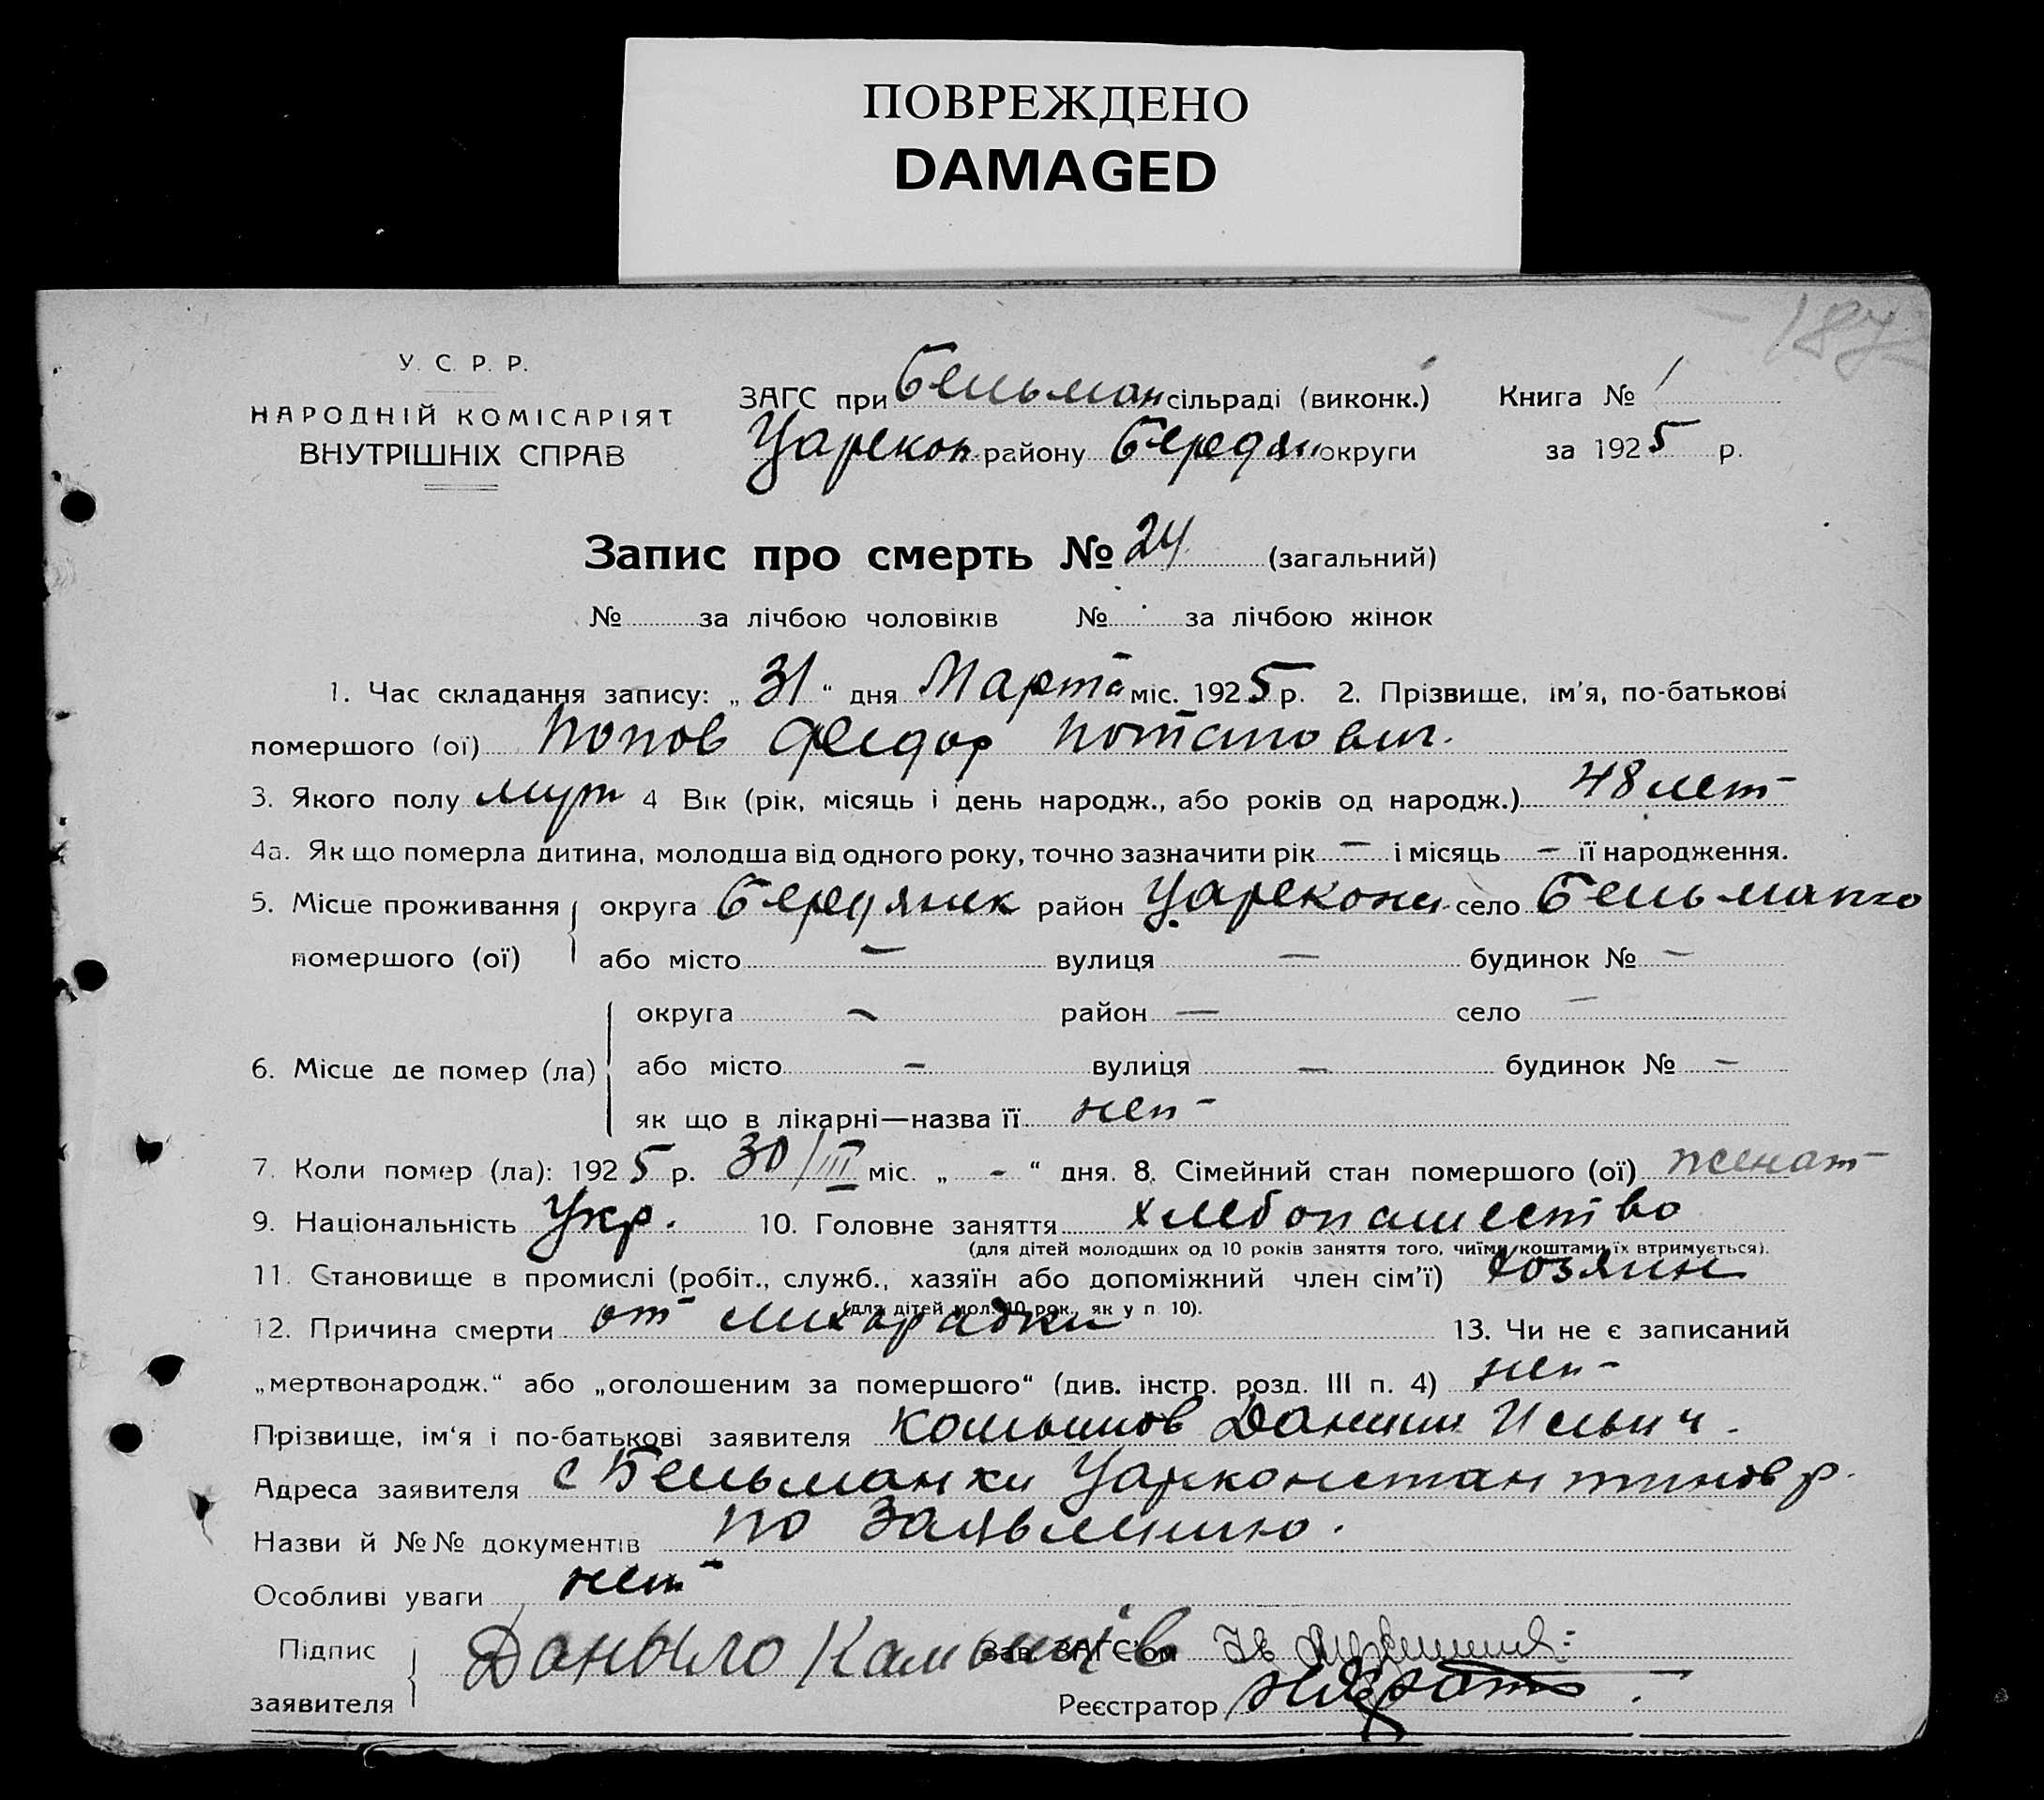 ПОВРЕЖДЕНО
DAMAGED
187
У. С. Р. Р.
НАРОДНІЙ КОМІСАРІЯТ
ВНУТРІШНІХ СПРАВ
ЗАГС при Бельман сільраді (виконк.) Книга № 1
Царекон району Бердян округи за 1925 р.
Запис про смерть № 24 (загальний)
№ за лічбою чоловіків № за лічбою жінок
1. Час складання запису: „ 31 “ дня Марта міс. 1925 р. 2. Прізвище, ім'я, по-батькові
помершого (ої) Попов Федор Потапович.
3. Якого полу муж 4 Вік (рік, місяць і день народж., або років од народж.) 48 лет
4а. Як що померла дитина, молодша від одного року, точно зазначити рік — і місяць — її народження.
5. Місце проживання помершого (ої) округа Бердянск район Царекон село Бельманко
або місто — вулиця — будинок № —
6. Місце де помер (ла) округа — район — село —
або місто — вулиця — будинок № —
як що в лікарні—назва її нет
7. Коли помер (ла): 1925 р. 30/III міс. „ - “ дня. 8. Сімейний стан помершого (ої) женат
9. Національність Укр. 10. Головне заняття хлебопашество
(для дітей молодших од 10 років заняття того, чиїми коштами їх втримується).
11. Становище в промислі (робіт., служб., хазяїн або допоміжний член сім'ї) хозяин
(для дітей мол. 10 рок., як у п. 10).
12. Причина смерти от лихорадки 13. Чи не є записаний
„мертвонародж.“ або „оголошеним за помершого“ (див. інстр. розд. III п. 4) нет
Прізвище, ім'я і по-батькові заявителя Данил Ильич.
Адреса заявителя с Бельманки Царконстантинов р.
Назви й №№ документів по Заявлению.
Особливі уваги нет
Підпис заявителя Даныло Зав. ЗАГС'ом
Реєстратор